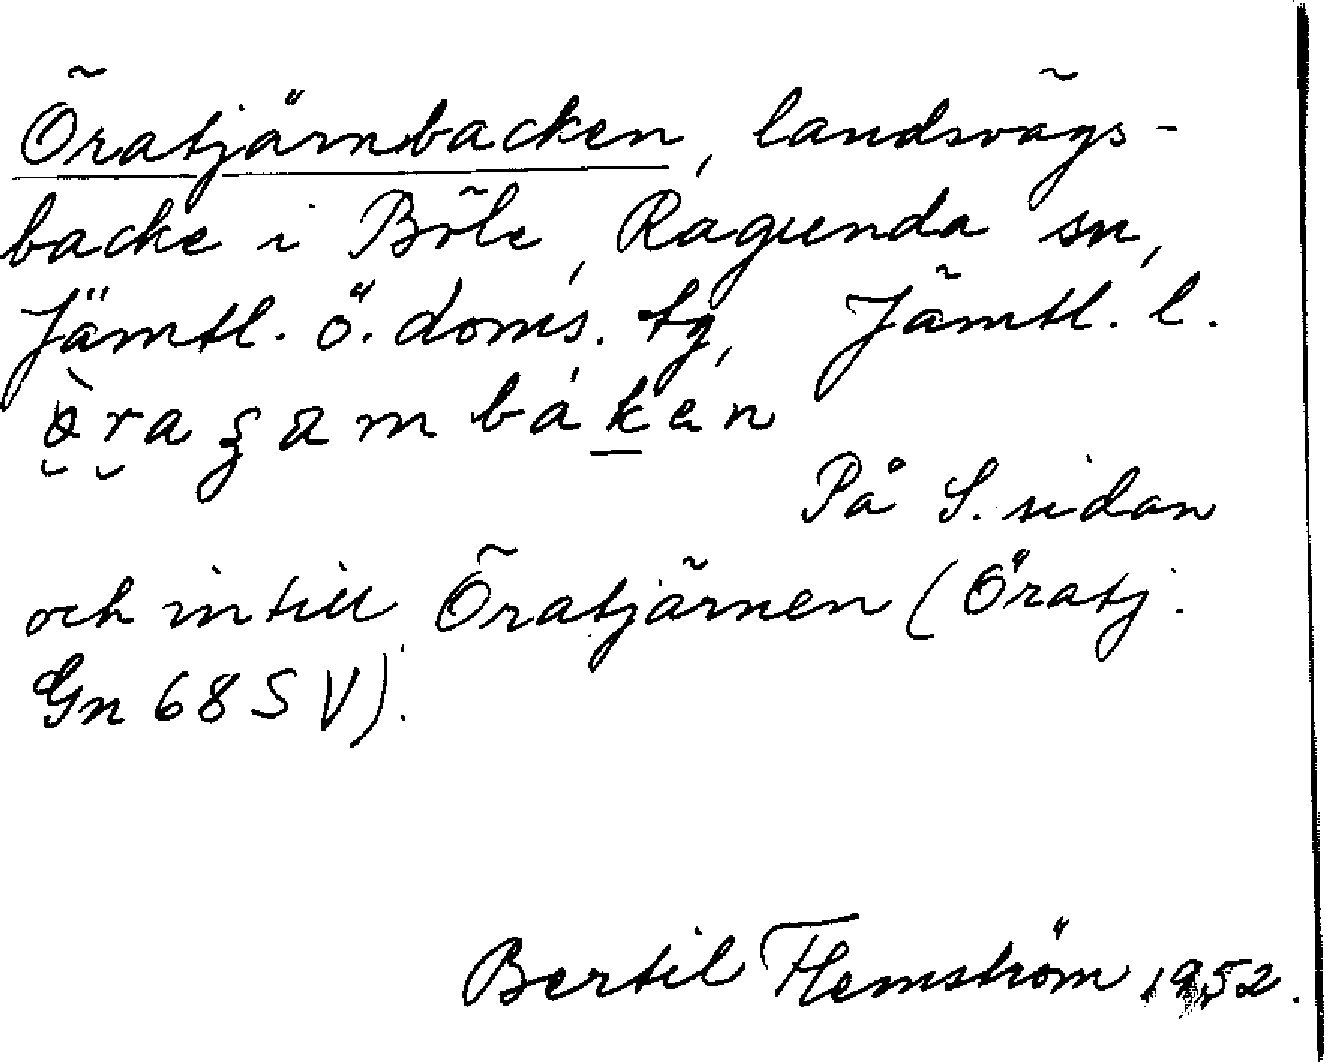 Öratjärnbacken, landsvägs-
backe i Böle, Ragunda sn,
Jämtl. ö. doms. tg, Jämtl. l.
På S. sidan
och intill Öratjärnen (Öratj.
Gn 68 SV).
Bertil Flemström 1952.